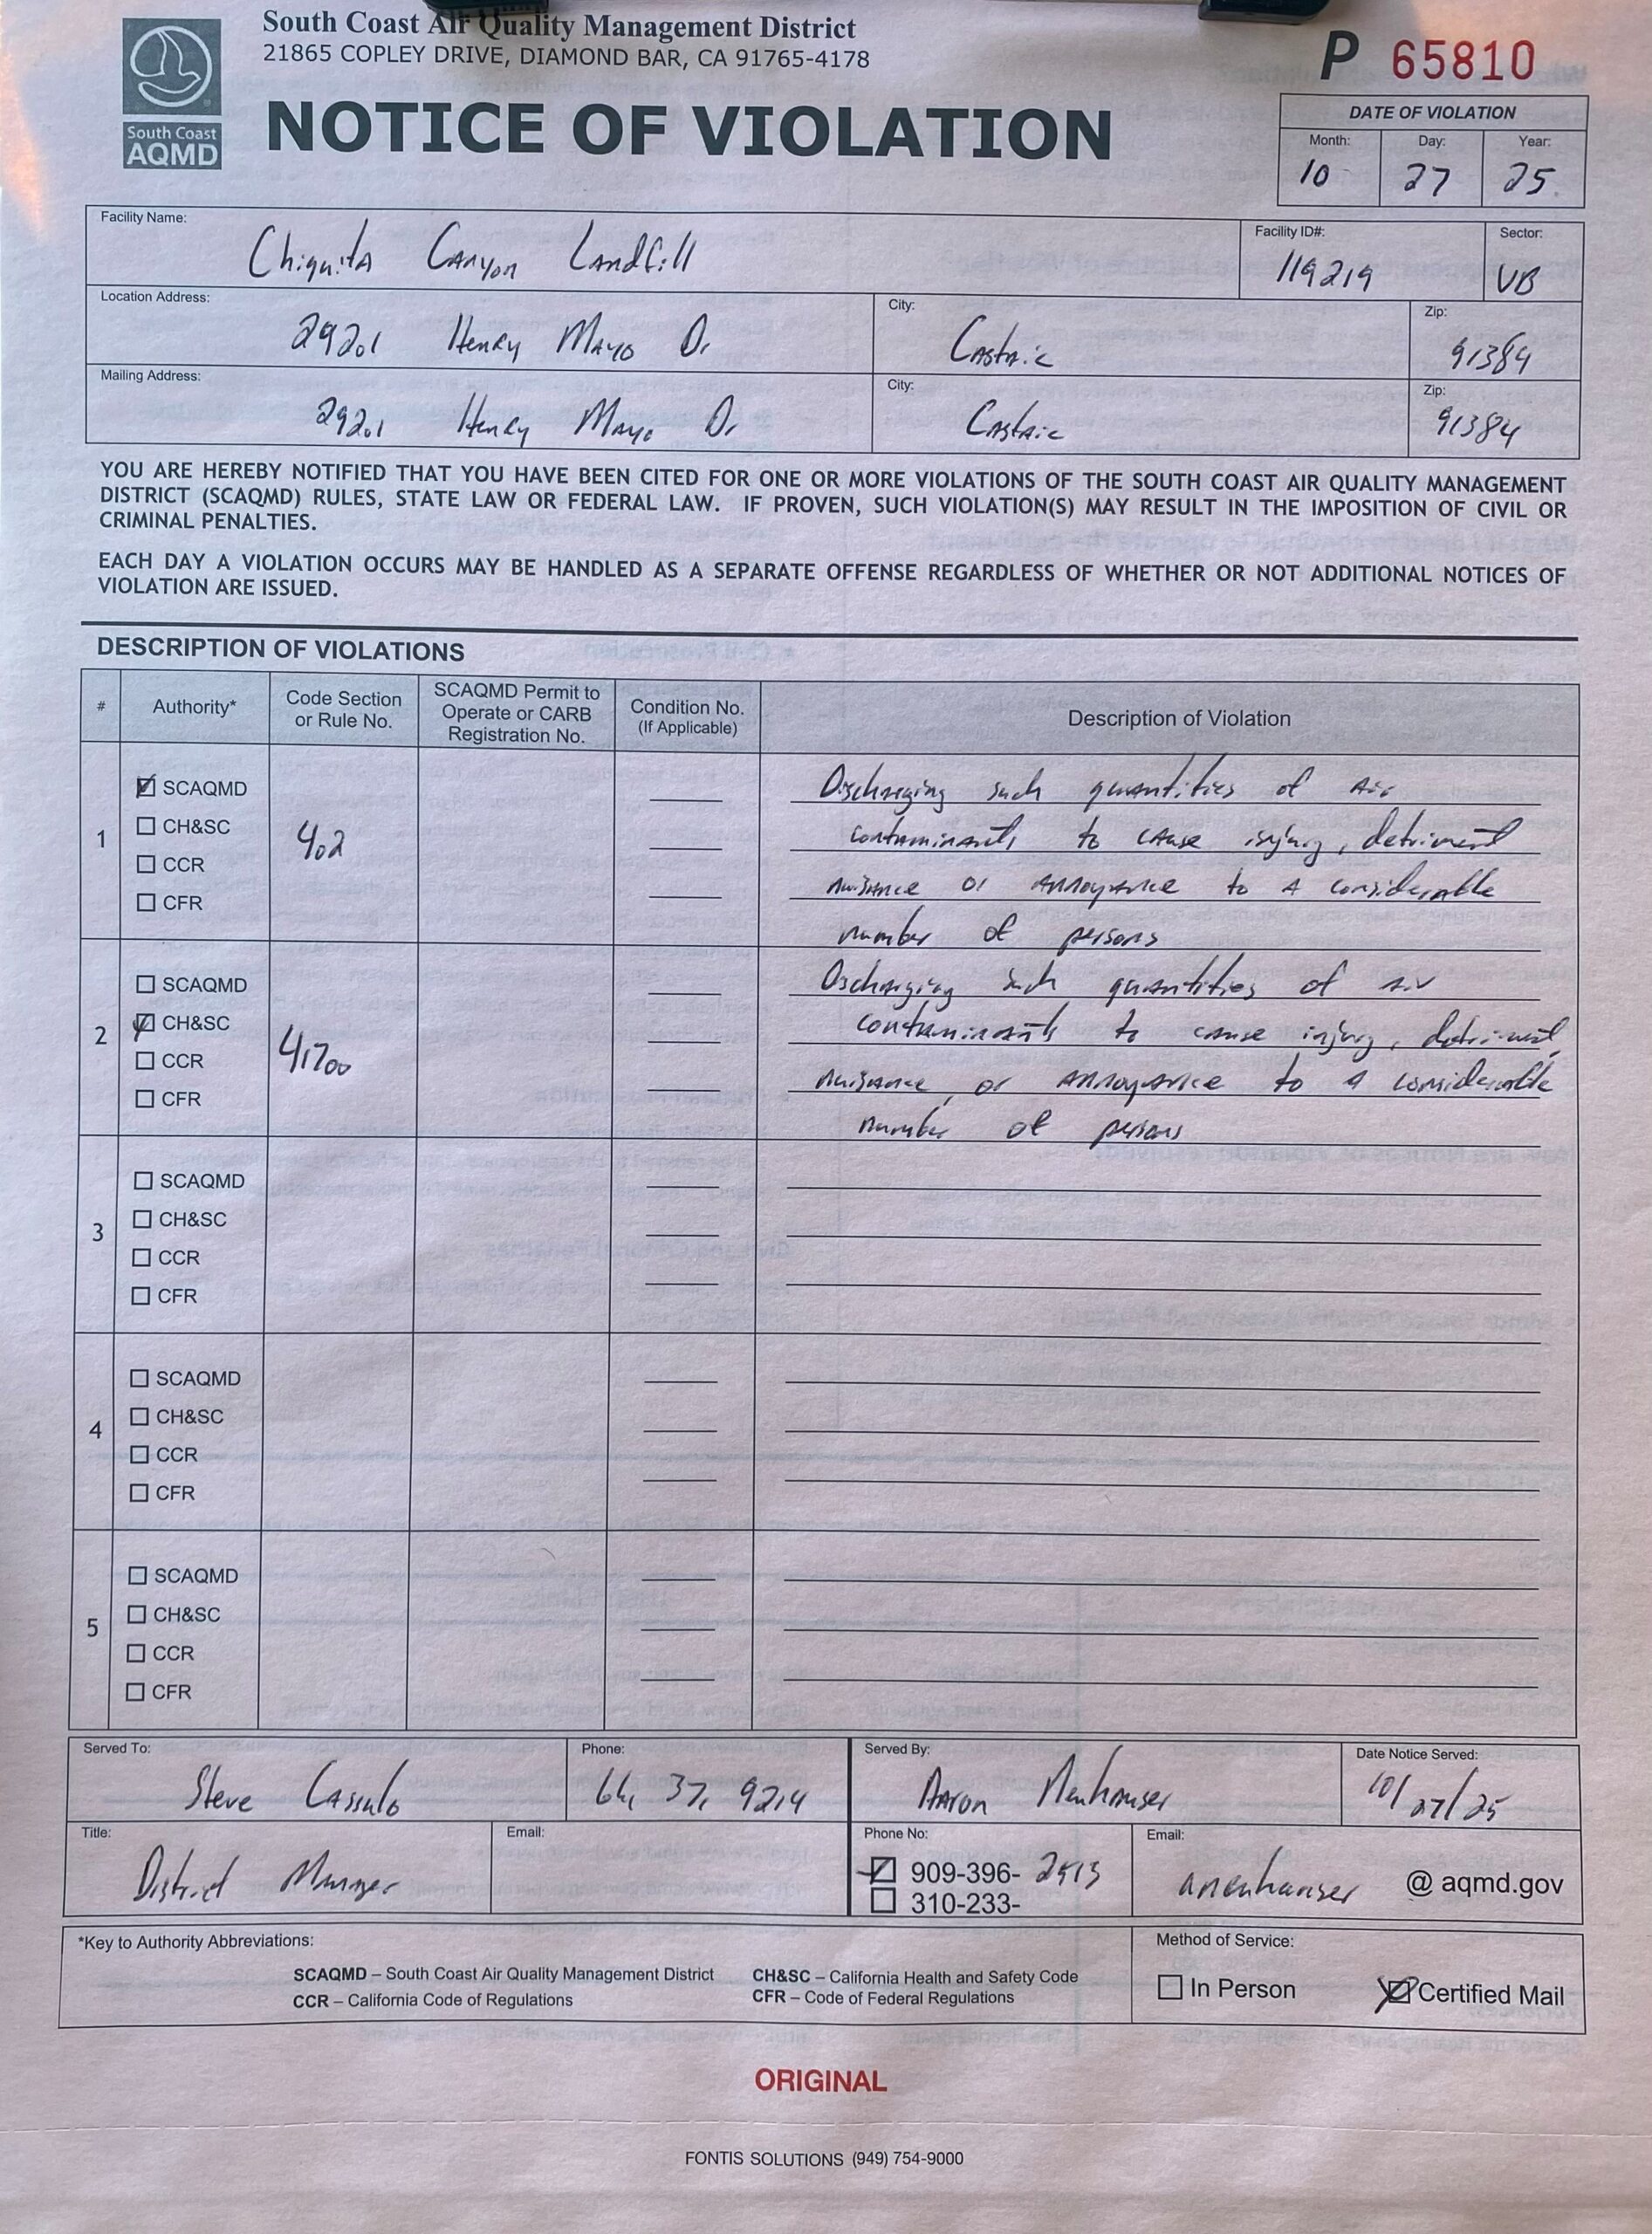 South Coast Air Quality Management District
21865 COPLEY DRIVE, DIAMOND BAR, CA 91765-4178
P 65810
South Coast
AQMD
NOTICE OF VIOLATION
DATE OF VIOLATION
Month: Day: Year:
10 27 25
Facility Name: Facility ID#: Sector:
Chiquita Canyon Landfill 119219 VB
Location Address: City: Zip:
29201 Henry Mayo Dr Castaic 91384
Mailing Address: City: Zip:
29201 Henry Mayo Dr Castaic 91384
YOU ARE HEREBY NOTIFIED THAT YOU HAVE BEEN CITED FOR ONE OR MORE VIOLATIONS OF THE SOUTH COAST AIR QUALITY MANAGEMENT
DISTRICT (SCAQMD) RULES, STATE LAW OR FEDERAL LAW. IF PROVEN, SUCH VIOLATION(S) MAY RESULT IN THE IMPOSITION OF CIVIL OR
CRIMINAL PENALTIES.
EACH DAY A VIOLATION OCCURS MAY BE HANDLED AS A SEPARATE OFFENSE REGARDLESS OF WHETHER OR NOT ADDITIONAL NOTICES OF
VIOLATION ARE ISSUED.
DESCRIPTION OF VIOLATIONS
# Authority* Code Section or Rule No. SCAQMD Permit to Operate or CARB Registration No. Condition No. (If Applicable) Description of Violation
1
SCAQMD
CH&SC
CCR
CFR
402
Discharging such quantities of air
contaminants to cause injury, detriment
nuisance or annoyance to a considerable
number of persons
2
SCAQMD
CH&SC
CCR
CFR
41700
Discharging such quantities of air
contaminants to cause injury, detriment,
nuisance, or annoyance to a considerable
number of persons
3
SCAQMD
CH&SC
CCR
CFR
4
SCAQMD
CH&SC
CCR
CFR
5
SCAQMD
CH&SC
CCR
CFR
Served To: Phone: Served By: Date Notice Served:
Steve Cassulo 661 371 9214 Aaron 10/27/25
Title: Email: Phone No: Email:
District Manager
909-396- 2513
310-233-
@ aqmd.gov
*Key to Authority Abbreviations:
SCAQMD – South Coast Air Quality Management District CH&SC – California Health and Safety Code
CCR – California Code of Regulations CFR – Code of Federal Regulations
Method of Service:
In Person Certified Mail
ORIGINAL
FONTIS SOLUTIONS (949) 754-9000